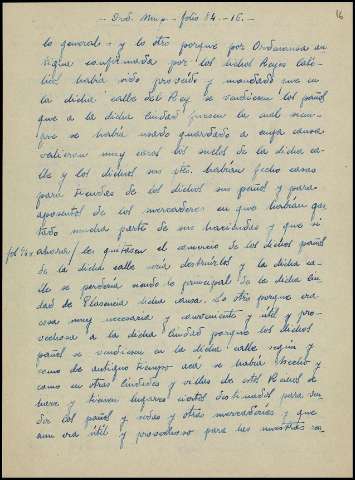 - Ord. Mnp - folio 84 - 16. -
16
lo general - y lo otro porque por Ordenanza an
tigua confirmada por los dichos Reyes Cató-
licos había sido proveído y mandado que en
la dicha calle del Rey se vendiesen los paños
que a la dicha ciudad fuesen la cual siem-
pre se había usado guardado a cuya causa
valieron muy caros los suelos de la dicha ca-
lle y los dichos sus ptes. habían fecho casas
para tiendas de los dichos sus paños y para
aposentos de los mercaderes en que habían gas
tado mucha parte de sus haciendas y que si
fol 84 v ahora/les quitasen el comercio de los dichos paños
de la dicha calle sería destruirlos y la dicha ca-
lle se perdería siendo lo principal de la dicha Ciu
dad de Plasencia dicha causa. Lo otro porque era
cosa muy necesaria y conveniente y útil y pro-
vechosa a la dicha Ciudad porque los dichos
paños se vendiesen en la dicha calle según y
como de antiguo tiempo acá se había hecho y
como en otras Ciudades y villas de estos Reinos se
hace y tienen lugares ciertos destinados para ven-
der los paños y sedas y otras mercaderías y que
aun era útil y provechoso para las nuestras ca-